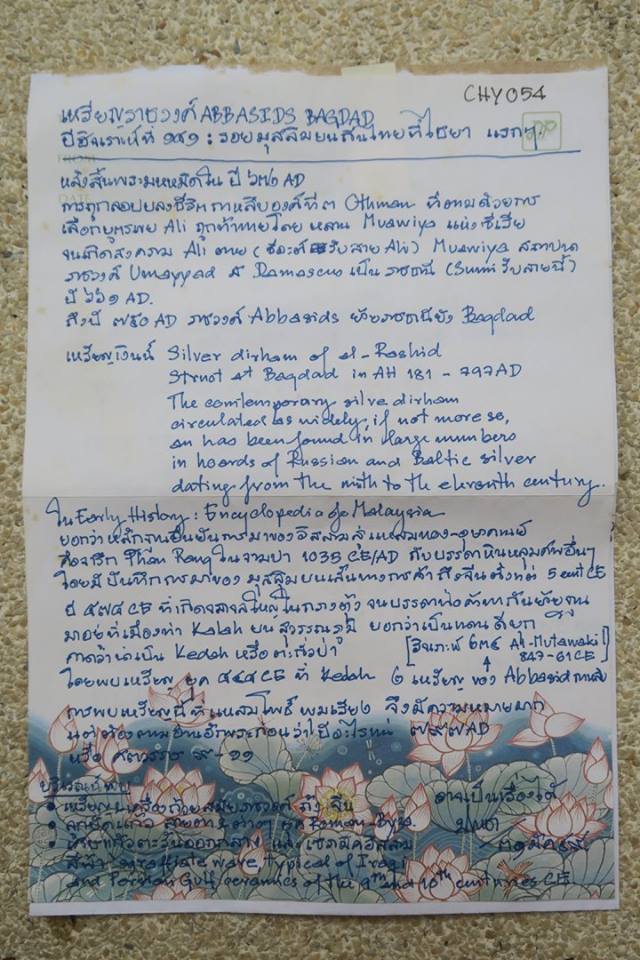 CHY054
เหรียญราชวงศ์ ABBASIDS BAGDAD
ปีฮิจเราะห์ที่ ๑๘๑ : รอยมุสลิมบนถิ่นไทยที่ไชยา แรกๆ
หลังสิ้นพระมหหมัดใน ปี ๖๓๒ AD
การถูกลอบปลงชีวิต กาหลิบองค์ที่ ๓ Othman ที่ตามด้วยการ
เลือกบุตรเขย Ali ถูกท้าทายโดย หลาน Muawiya แห่งซีเรีย
จนเกิดสงคราม Ali ตาย (ชีอะต์รับสาย Ali) Muawiya สถาปนา
ราชวงศ์ Umayyad มี Damascus เป็น ราชธานี (Sunni รับสายนี้)
ปี ๖๖๑ AD.
ถึงปี ๗๕๐ AD ราชวงศ์ Abbasids ย้ายราชธานียัง Bagdad
เหรียญเงินนี้ Silver dirham of al-Rashid
Struct at Bagdad in AH 181 - 797AD
The contemporary silve dirham
circulated as widely, if not more so,
an has been found in large numbers
in hoards of Russian and Baltic silver
dating from the ninth to the eleventh century.
ใน Early History : Encyclopedia of Malaysia
บอกว่าหลักฐานยืนยันการมาของอิสลามสู่แหลมทอง-อุษาคเนย์
คือจารึก Phan Rang ในจามปา 1035 CE/AD กับบรรดาหินหลุมศพอื่นๆ
โดยมีบันทึกการมาของ มุสลิมบนเส้นทางการค้าถึงจีนตั้งแต่ 5 cent CE
ปี ๘๗๘ CE ที่เกิดจลาจลใหญ่ในกวางตุ้ง จนบรรดาพ่อค้าพากันย้ายฐาน
มาอยู่ที่เมืองท่า Kalah บนสุวรรณภูมิ บอกว่าเป็นแดนดีบุก
คาดว่าน่าเป็น Kedah หรือตะกั่วป่า
[ฮิจเราะห์ ๒๓๔ Al-Mutawakil 847-61CE]
โดยพบเหรียญ ยุค ๘๔๘ CE ที่ Kedah ๒ เหรียญ ของ Abbasid กาหลิบ
การพบเหรียญนี้ ที่แหลมโพธิ์ พุมเรียง จึงมีความหมายมาก
หรือ ศตวรรษ ๙-๑๑
เหรียญ เครื่องถ้วยสมัยราชวงศ์ ถัง จีน
ลูกปัดแก้ว ต่างๆ ยุค Roman-Byza.
typical of Iraqi
and Persian Gulf ceramics of the 9th and 10th centuries CE
อาจเป็นเรื่องได้